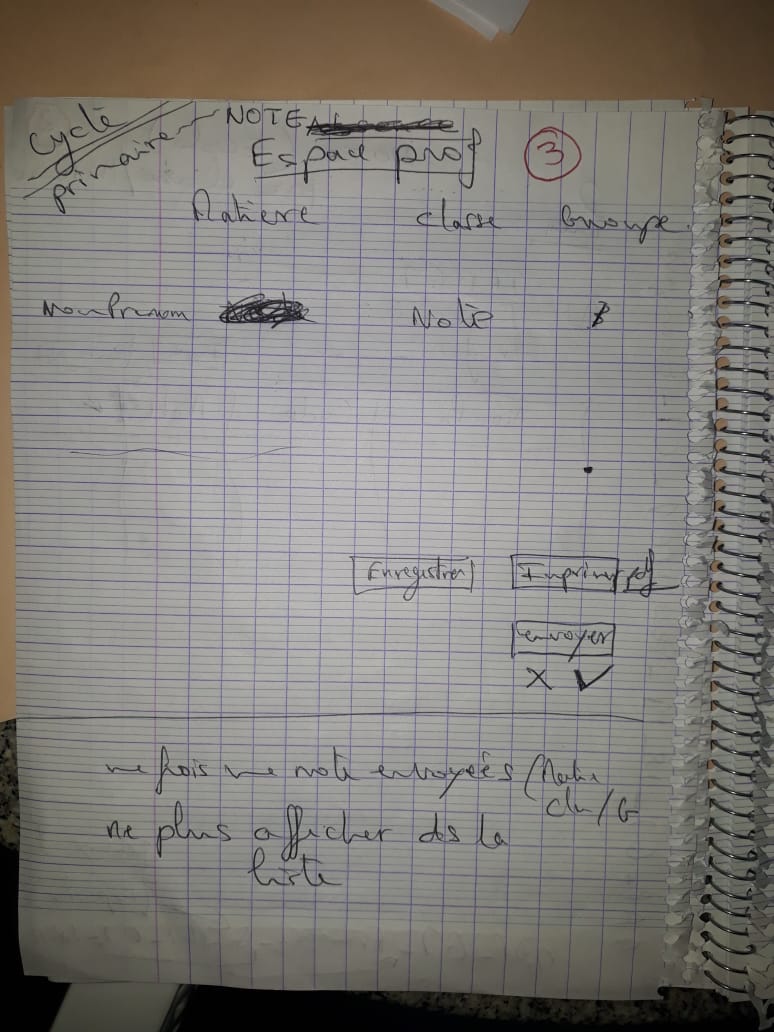 Cycle
primaire
NOTE
Espace prof
3
Matière classe Groupe
Nom Prenom Note
Enregistrer Imprimer pdf
envoyer
X ✓
une fois une note envoyées (Matie
cla/G
ne plus afficher ds la
liste